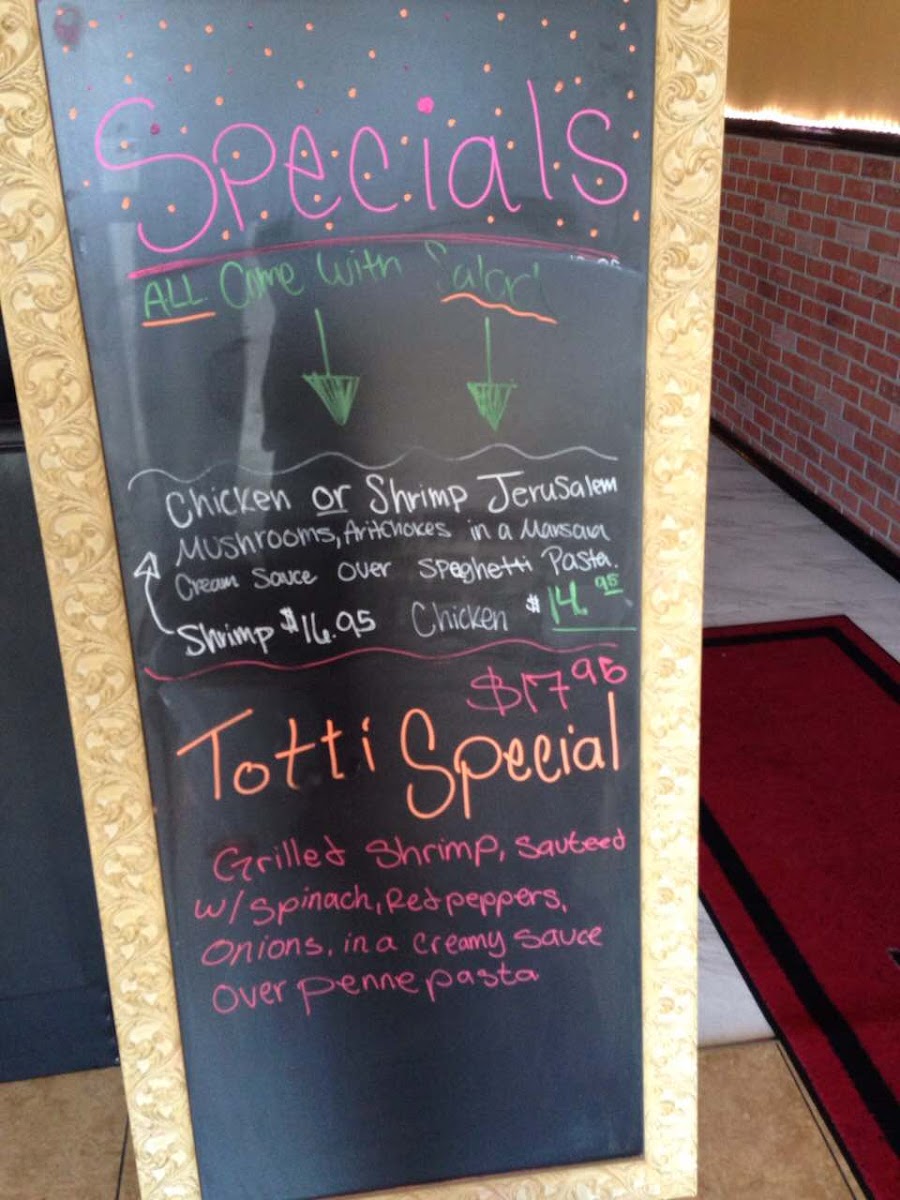 Specials
ALL Come with Salad
Chicken or Shrimp Jerusalem
Mushrooms, Aritchokes in a Marsala
Cream Sauce over Speghetti Pasta.
Shrimp $16.95 Chicken $14.95
$17.95
Totti Special
Grilled Shrimp, Sauteed
w/ spinach, Red peppers,
Onions, in a creamy sauce
over penne pasta